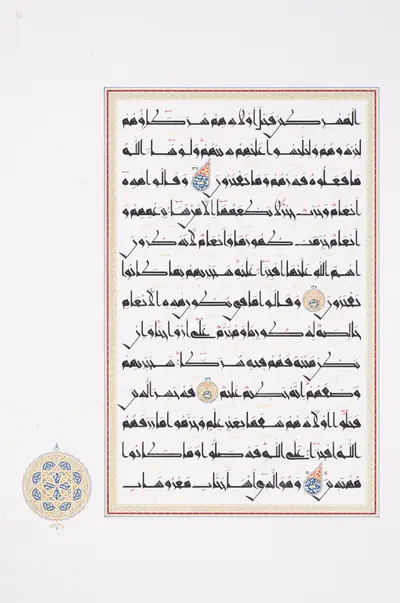 المشركين قتل أولادهم شركاؤهم
ليردوهم وليلبسوا عليهم دينهم ولو شاء الله
ما فعلوه فذرهم وما يفترون وقالوا هذه
أنعام وحرث حجر لا يطعمها إلا من نشاء بزعمهم و
أنعام حرمت ظهورها وأنعام لا يذكرون
اسم الله عليها افتراء عليه سيجزيهم بما كانوا
يفترون وقالوا ما في بطون هذه الأنعام
خالصة لذكورنا ومحرم على أزواجنا وإن
يكن ميتة فهم فيه شركاء سيجزيهم
وصفهم إنه حكيم عليم قد خسر الذين
قتلوا أولادهم سفها بغير علم وحرموا ما رزقهم
الله افتراء على الله قد ضلوا وما كانوا
مهتدين وهو الذي أنشأ جنات معروشات